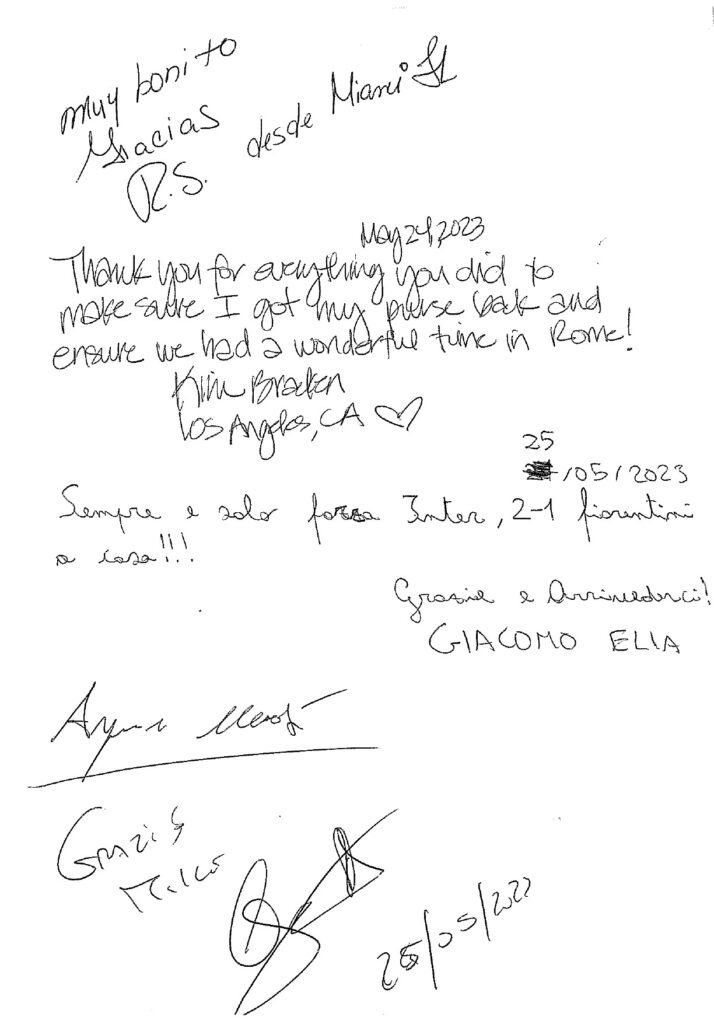 muy bonito
Gracias desde Miami FL
R.S.
May 24, 2023
Thank you for everything you did to
make sure I got my purse back and
ensure we had a wonderful time in Rome!
Kim Bracken
Los Angeles, CA ♡
25
/05/2023
Sempre e solo forza Inter, 2-1 fiorentini
a casa!!!
Grazie e Arrivederci!
GIACOMO ELIA
GRAZIE
25/05/2023